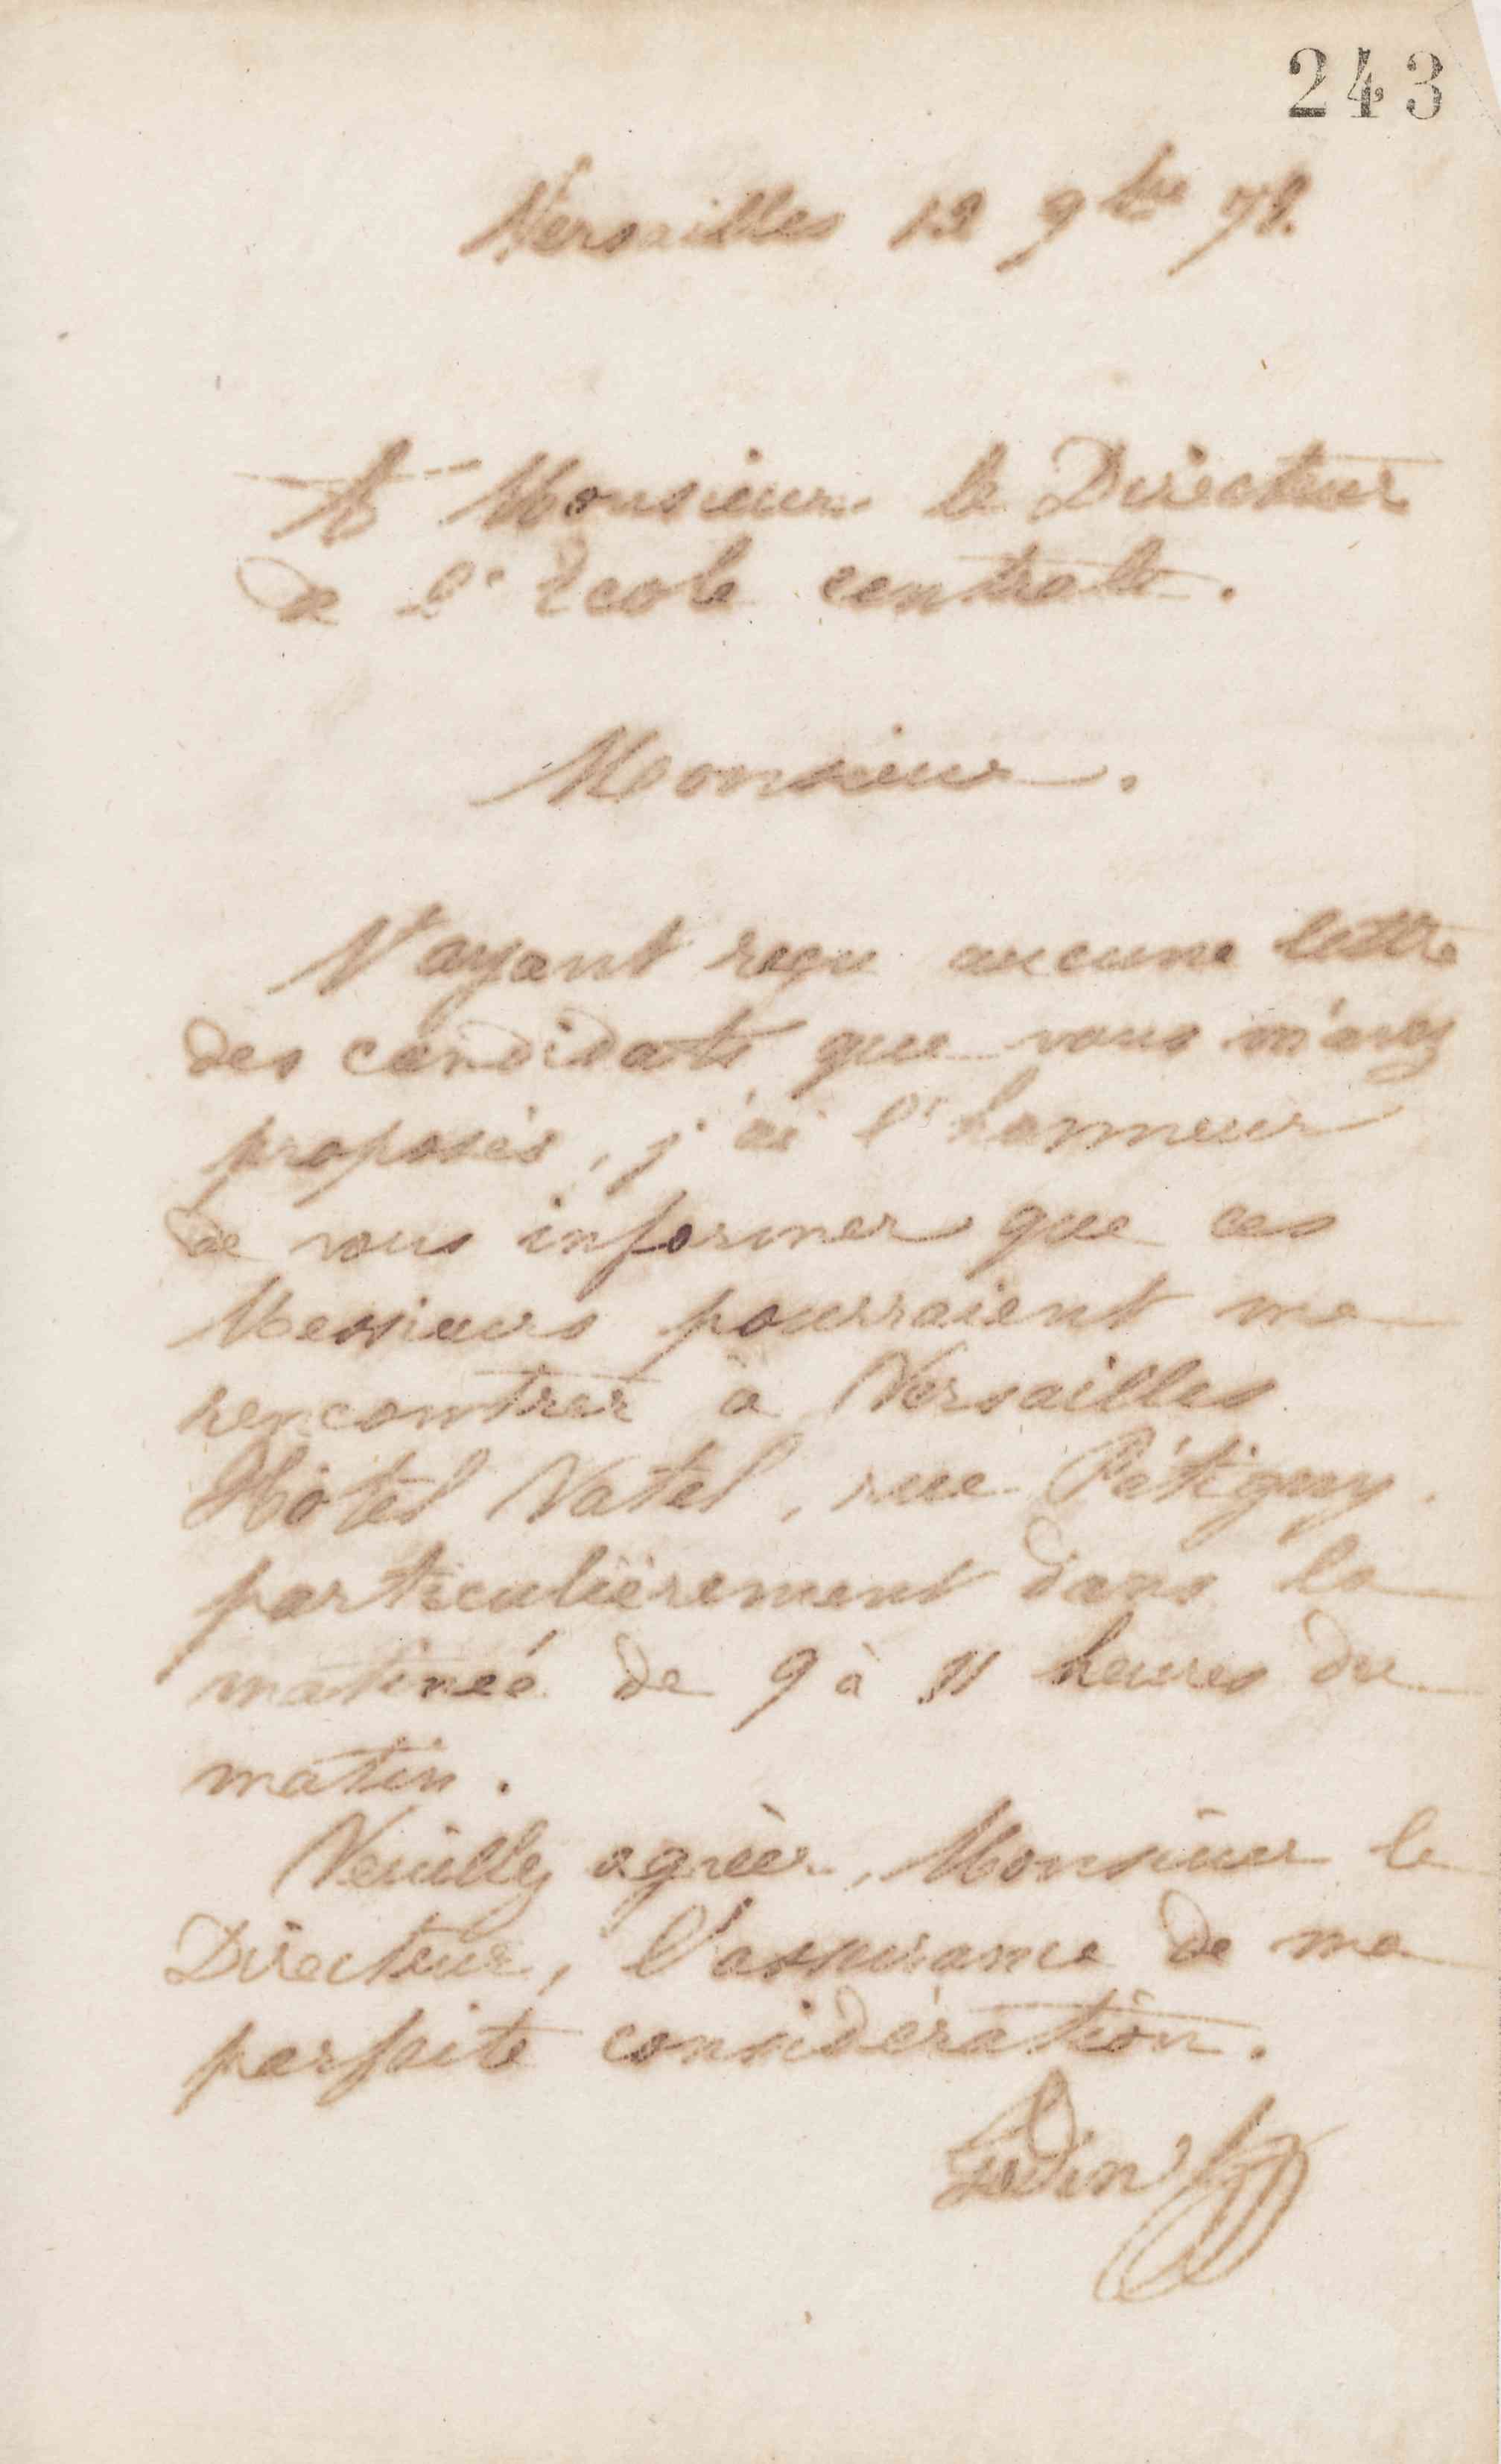 243
Versailles 12 9bre 72.
A Monsieur le Directeur
de l'Ecole centrale.
Monsieur.
N'ayant reçu aucune lettre
des candidats que vous m'avez
proposés, j'ai l'honneur
de vous informer que ces
Messieurs pourraient me
rencontrer à Versailles
Hôtel Vatel, rue Pétigny.
particulièrement dans la
matineé de 9 à 11 heures du
matin.
Veuillez agréer, Monsieur le
Directeur, l'assurance de ma
parfaite considération.
Godin